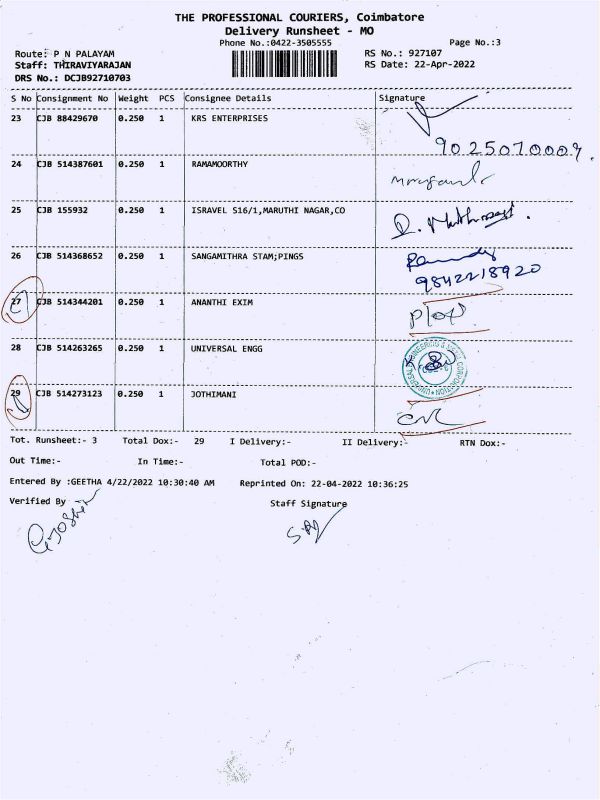 THE PROFESSIONAL COURIERS, Coimbatore
Delivery Runsheet - MO
Phone No.:0422-3505555
Page No.:3
Route: P N PALAYAM
RS No.: 927107
Staff: THIRAVIYARAJAN
RS Date: 22-Apr-2022
DRS No.: DCJB92710703
S No Consignment No Weight PCS Consignee Details Signature
23 CJB 88429670 0.250 1 KRS ENTERPRISES
9025070009.
24 CJB 514387601 0.250 1 RAMAMOORTHY
25 CJB 155932 0.250 1 ISRAVEL S16/1,MARUTHI NAGAR,CO
26 CJB 514368652 0.250 1 SANGAMITHRA STAM;PINGS
9842218920
27 CJB 514344201 0.250 1 ANANTHI EXIM
28 CJB 514263265 0.250 1 UNIVERSAL ENGG
29 CJB 514273123 0.250 1 JOTHIMANI
Tot. Runsheet:- 3 Total Dox:- 29 I Delivery:- II Delivery:- RTN Dox:-
Out Time:- In Time:- Total POD:-
Entered By :GEETHA 4/22/2022 10:30:40 AM Reprinted On: 22-04-2022 10:36:25
Verified By Staff Signature